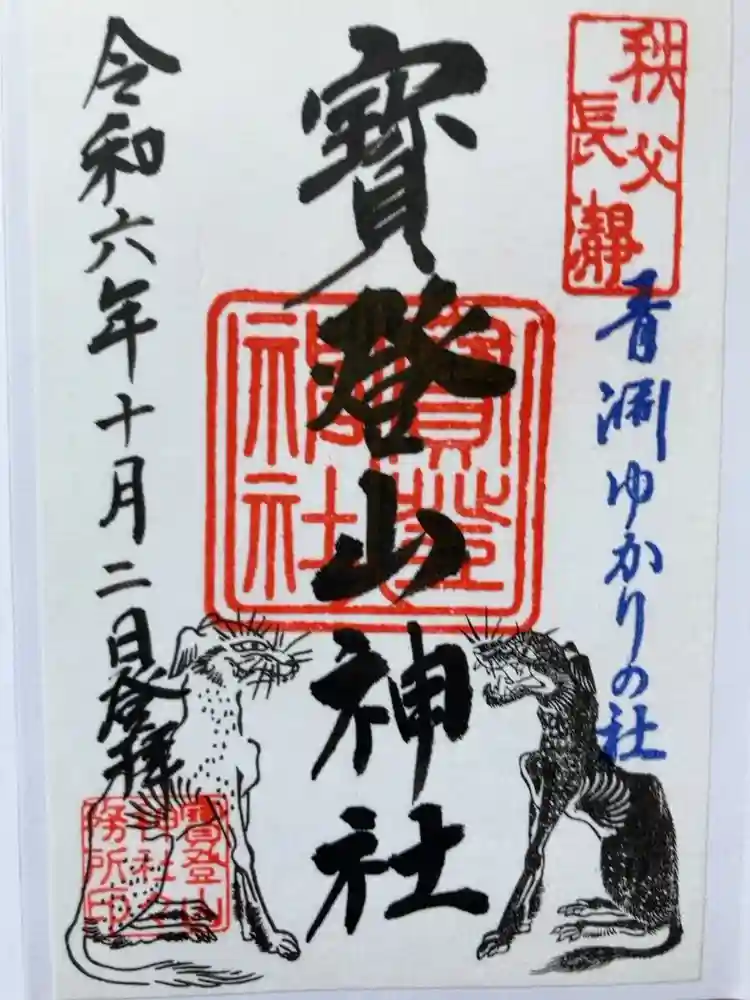 秩父
長瀞
青淵ゆかりの社
寳登山神社
寳登
神社
令和六年十月二日登拝
寳登山
神社
務所印